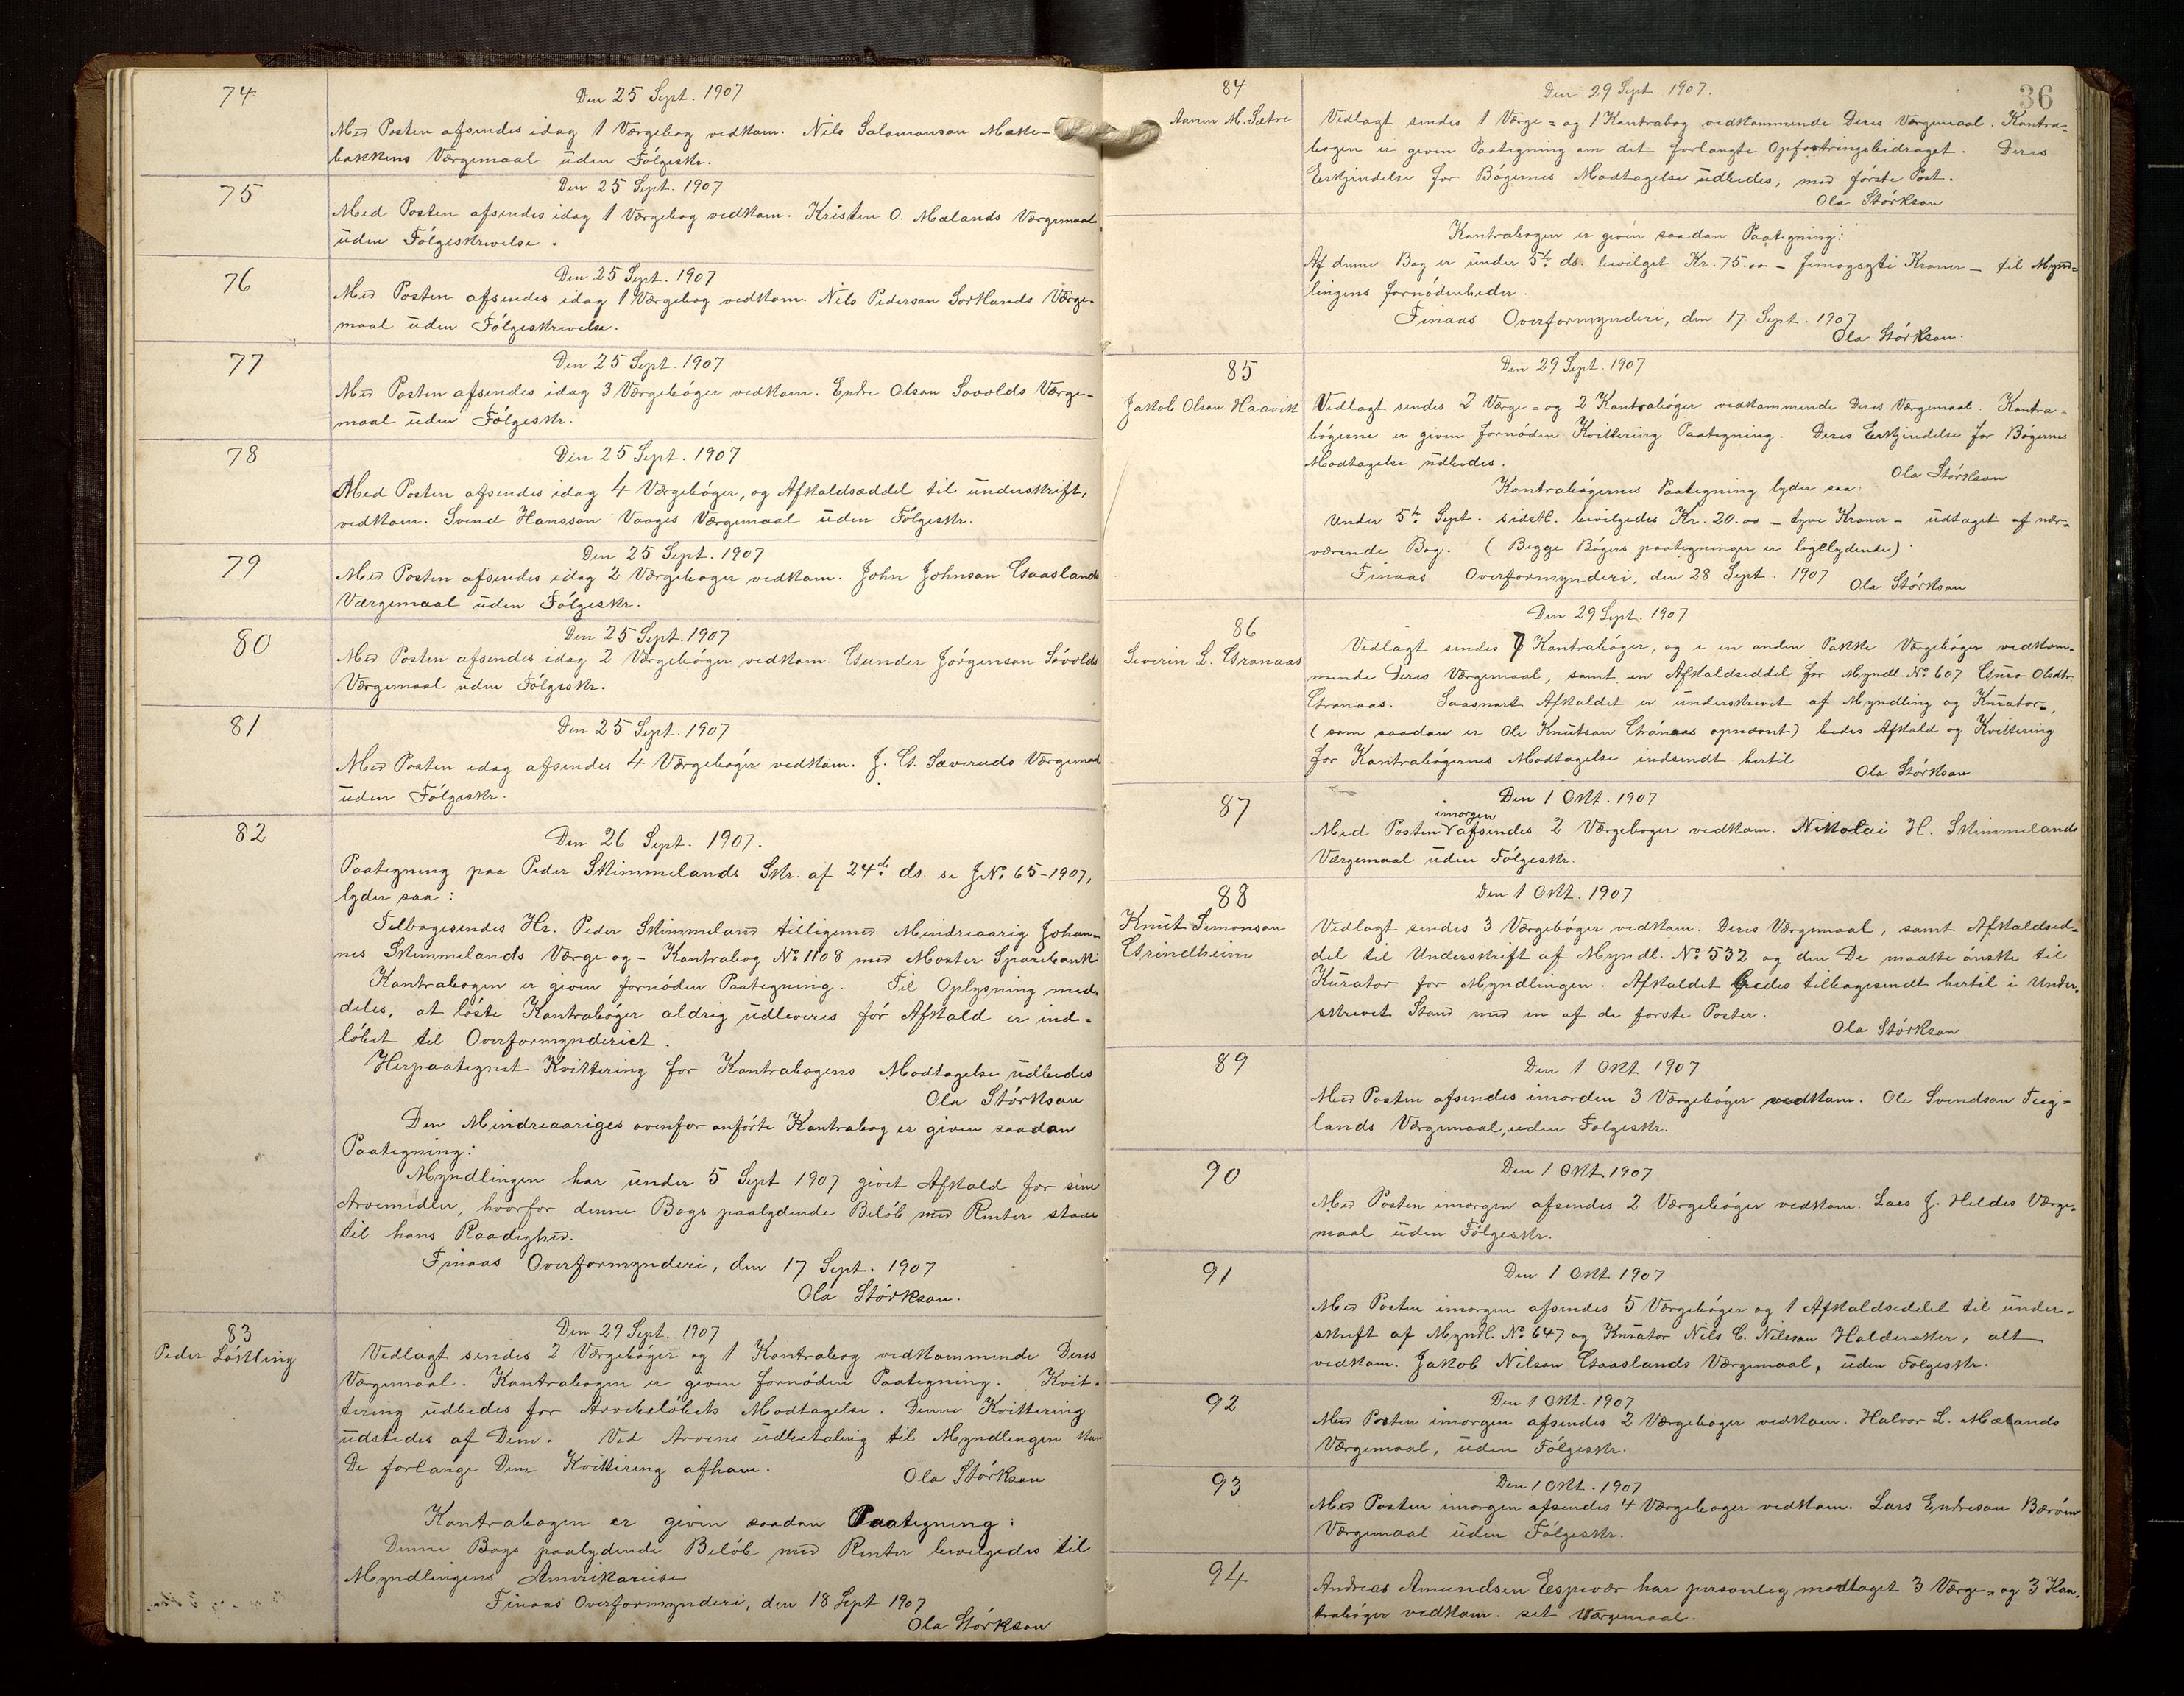 74
Den 25 Sept. 1907
Med Posten afsendes idag 1 Værgebog vedkom. Nils Salamonson Møkke-
bakkens Værgemaal üden Følgeskr.
75
Den 25 Sept. 1907
Med Posten afsendes idag 1 Værgebog vedkom. Kristen O. Mælands Værgemaal
üden Følgeskrivelse.
76
Den 25 Sept. 1907
Med Posten afsendes idag 1 Værgebog vedkom. Nils Pederson Sortlands Værge-
maal üden Følgeskrivelse.
77
Den 25 Sept. 1907
Med Posten afsendes idag 3 Værgebøger vedkom. Endre Olson Søvolds Værge-
maal üden Følgeskr.
78
Den 25 Sept. 1907
Med Posten afsendes idag 4 Værgebøger, og Afkaldsæddel til ünderskrift,
vedkom. Svend Hansson Vaages Værgemaal üden Følgeskr.
79
Den 25 Sept. 1907
Med Posten afsendes idag 2 Værgebøger vedkom. John Johnson Gaaslands
Værgemaal üden Følgeskr.
80
Den 25 Sept. 1907
Med Posten afsendes idag 2 Værgebøger vedkom. Gunder Jørgenson Søvolds
Værgemaal üden Følgeskr.
81
Den 25 Sept. 1907
Med Posten idag afsendes 4 Værgebøger vedkom. J. G. Sæveruds Værgemaal
üden Følgeskr.
82
Den 26 Sept. 1907.
Paategning paa Peder Skimmelands Skr. af 24de ds. se J.No. 65-1907,
lyder saa:
Tilbagesendes Hr. Peder Skimmeland tilligemed Mindreaarig Johan-
nes Skimmelands Værge og- Kontrabog No. 1108 med Moster Sparebank
Kontrabogen er given fornøden Paategning. Til Oplysning med-
deles, at løste Kontrabøger aldrig üdleveres før Afkald er ind-
løbet til Overformynderiet.
Herpaategnet Kvittering for Kontrabogens Modtagelse üdbedes
Ola Størkson
Den Mindreaariges ovenfor anførte Kontrabog er given saadan
Paategning:
Myndlingen har ünder 5 Sept 1907 givet Afkald for sine
Arvemidler, hvorfor denne Bogs paalydende Beløb med Renter staar
til hans Raadighed.
Finaas Overformynderi, den 17 Sept. 1907
Ola Størkson.
83
Peder Løkling
Den 29 Sept. 1907
Vedlagt sendes 2 Værgebøger og 1 Kontrabog vedkommende Deres
Værgemaal. Kontrabogen er given fornøden Paategning. Kvit-
tering üdbedes for Arvebeløbets Modtagelse. Denne Kvittering
üdstedes af Dem. Ved Arvens üdbetaling til Myndlingen kan
De forlange Dem Kvittering afham.
Ola Størkson
Kontrabogen er given saadan Paategning:
Denne Bogs paalydende Beløb med Renter bevilgedes til
Myndlingens Amerikareise
Finaas Overformynderi, den 18 Sept 1907
Ola Størkson
36
84
Aanen M. Sætre
Den 29 Sept. 1907.
Vedlagt sendes 1 Værge= og 1 Kontrabog vedkommende Deres Værgemaal. Kontra-
bogen er given Paategning om det forlangte Opfostringsbidraget. Deres
Erkjendelse for Bøgernes Modtagelse üdbedes, med første Post.
Ola Størkson
Kontrabogen er given saadan Paategning:
Af denne Bog er ünder 5te ds. bevilget Kr. 75.00 - femogsyti Kroner - til Mynd-
lingens fornødenheder.
Finaas Overformynderi, den 17. Sept. 1907
Ola Størkson.
85
Jakob Olson Haavik
Den 29 Sept. 1907
Vedlagt sendes 2 Værge= og 2 Kontrabøger vedkommende Deres Værgemaal. Kontra-
bøgerne er given fornøden Kvittering Paategning. Deres Erkjendelse for Bøgernes
Modtagelse üdbedes.
Ola Størkson
Kontrabøgernes Paategning lyder saa:
Under 5te Sept. sidstl. bevilgedes Kr. 20.00 - tyve Kroner - üdtaget af nær-
værende Bog. (Begge Bøgers paategninger er ligelydende)
Finaas Overformynderi, den 28 Sept. 1907
Ola Størkson
86
Severin L. Grønaas
Den 29 Sept. 1907
Vedlagt sendes 7 Kontrabøger, og i en anden Pakke Værgebøger vedkom-
mende Deres Værgemaal, samt en Afkaldseddel for Myndl. No. 607 Guro Olsdtr.
Grønaas. Saasnart Afkaldet er ünderskrevet af Myndling og Kürator,
(som saadan er Ole Knütson Grønaas opnævnt) bedes Afkald og Kvittering
for Kontrabøgernes Modtagelse indsendt hertil
Ola Størkson
87
Den 1 Okt. 1907
imorgen
Med Posten afsendes 2 Værgebøger vedkom. Nikolai H. Skimmelands
Værgemaal üden Følgeskr.
88
Knüt Simonson
Grindheim
Den 1 Okt. 1907
Vedlagt sendes 3 Værgebøger vedkom. Deres Værgemaal, samt Afkaldsed-
del til Underskrift af Myndl. No. 532 og den De maatte ønske til
Kürator for Myndlingen. Afkaldet bedes tilbagesendt hertil i Under-
skrevet Stand med en af de første Poster.
Ola Størkson
89
Den 1 Okt 1907
Med Posten afsendes imorden 3 Værgebøger vedkom. Ole Svendson Teig-
lands Værgemaal, uden Følgeskr.
90
Den 1 Okt. 1907
Med Posten imorgen afsendes 2 Værgebøger vedkom. Lars J. Hildes Værge-
maal üden Følgeskr.
91
Den 1 Okt 1907
Med Posten imorgen afsendes 5 Værgebøger og 1 Afkaldseddel til ünder-
skrift af Myndl. No. 647 og Kürator Nils C. Nilsson Halderaker, alt
vedkom. Jakob Nilson Gaaslands Værgemaal, üden Følgeskr.
92
Den 1 Okt. 1907
Med Posten imorgen afsendes 2 Værgebøger vedkom. Halvor L. Mælands
Værgemaal, üden Følgeskr.
93
Den 1 Okt. 1907
Med Posten imorgen afsendes 4 Værgebøger vedkom. Lars Endreson
Værgemaal üden Følgeskr.
94
Andreas Amundsen Espevær har personlig modtaget 3 Værge= og 3 Kon-
trabøger vedkom. sit Værgemaal.